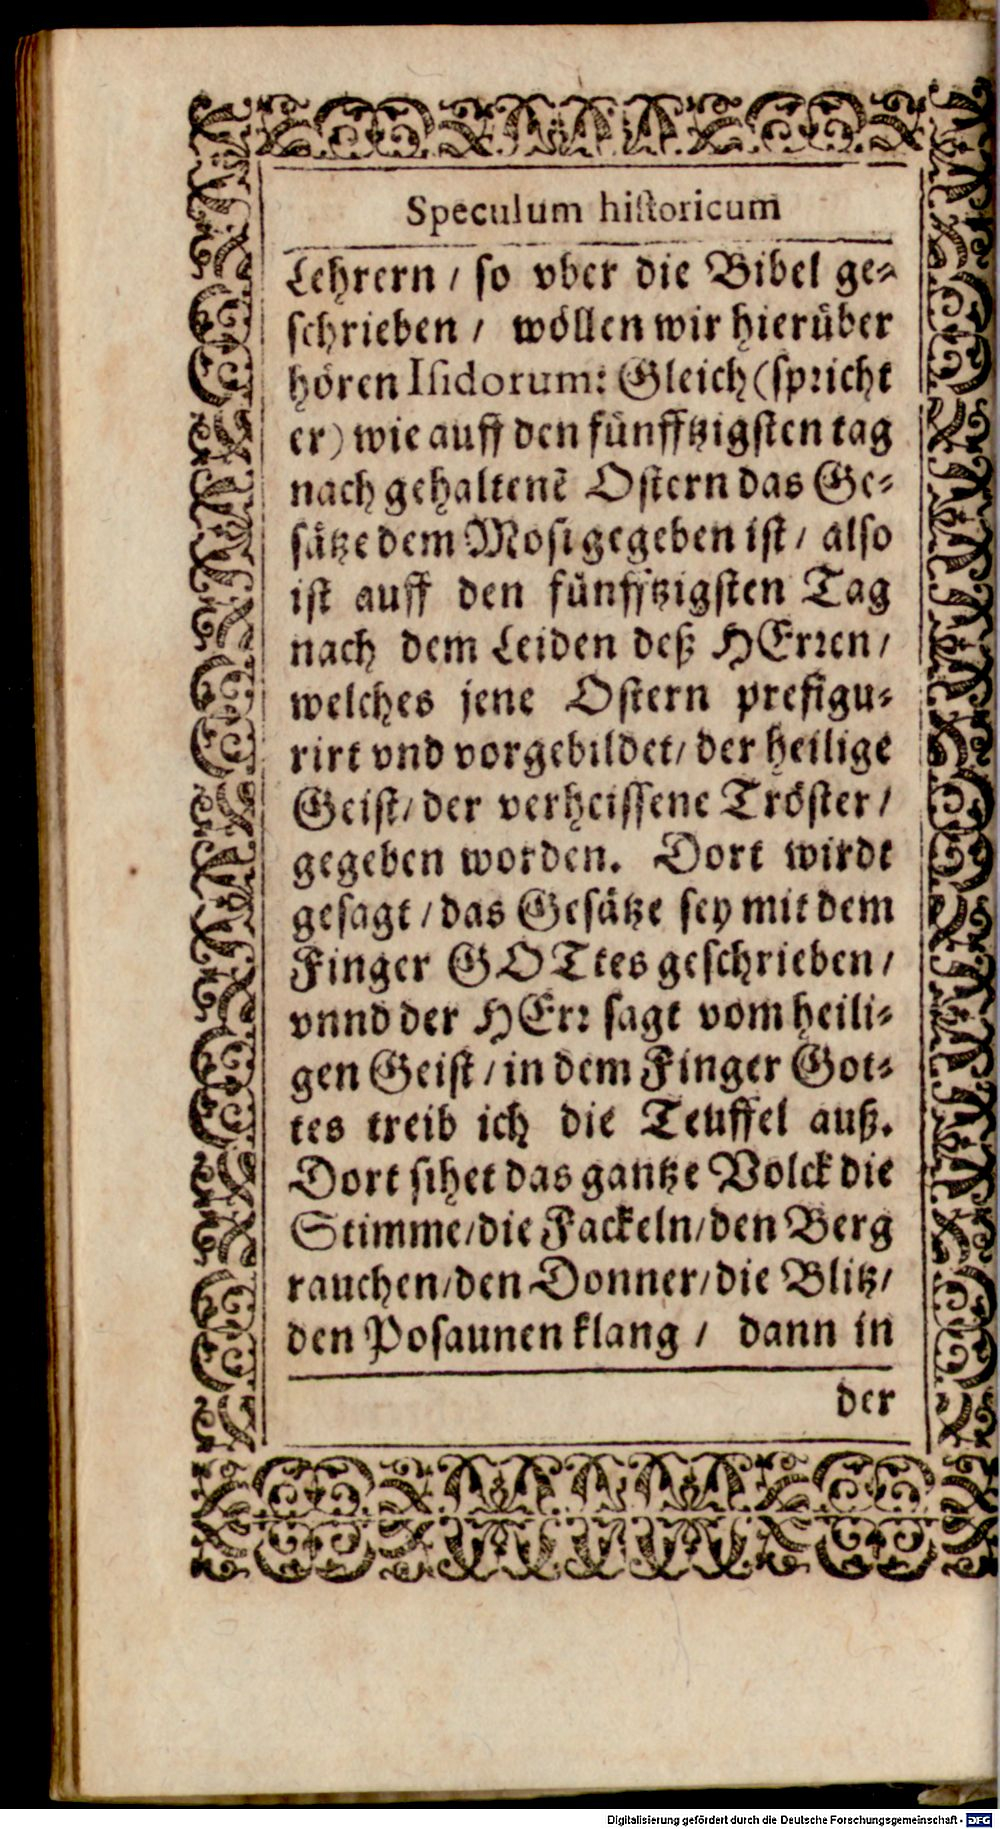 Speculum historicum
Lehrern / so vber die Bibel ge-
schrieben / wöllen wir hierüber
hören Isidorum: Gleich (spricht
er) wie auff den fünfftzigsten tag
nach gehaltenē Ostern das Ge-
sätze dem Mosi gegeben ist / also
ist auff den fünfftzigsten Tag
nach dem Leiden deß HErren /
welches jene Ostern prefigu-
rirt vnd vorgebildet / der heilige
Geist / der verheissene Tröster /
gegeben worden. Dort wirdt
gesagt / das Gesätze sey mit dem
Finger GOTtes geschrieben /
vnnd der HErr sagt vom heili-
gen Geist / in dem Finger Got-
tes treib ich die Teuffel auß.
Dort sihet das gantze Volck die
Stimme / die Fackeln / den Berg
rauchen / den Donner / die Blitz /
den Posaunen klang / dann in
der
Digitalisierung gefördert durch die Deutsche Forschungsgemeinschaft - DFG